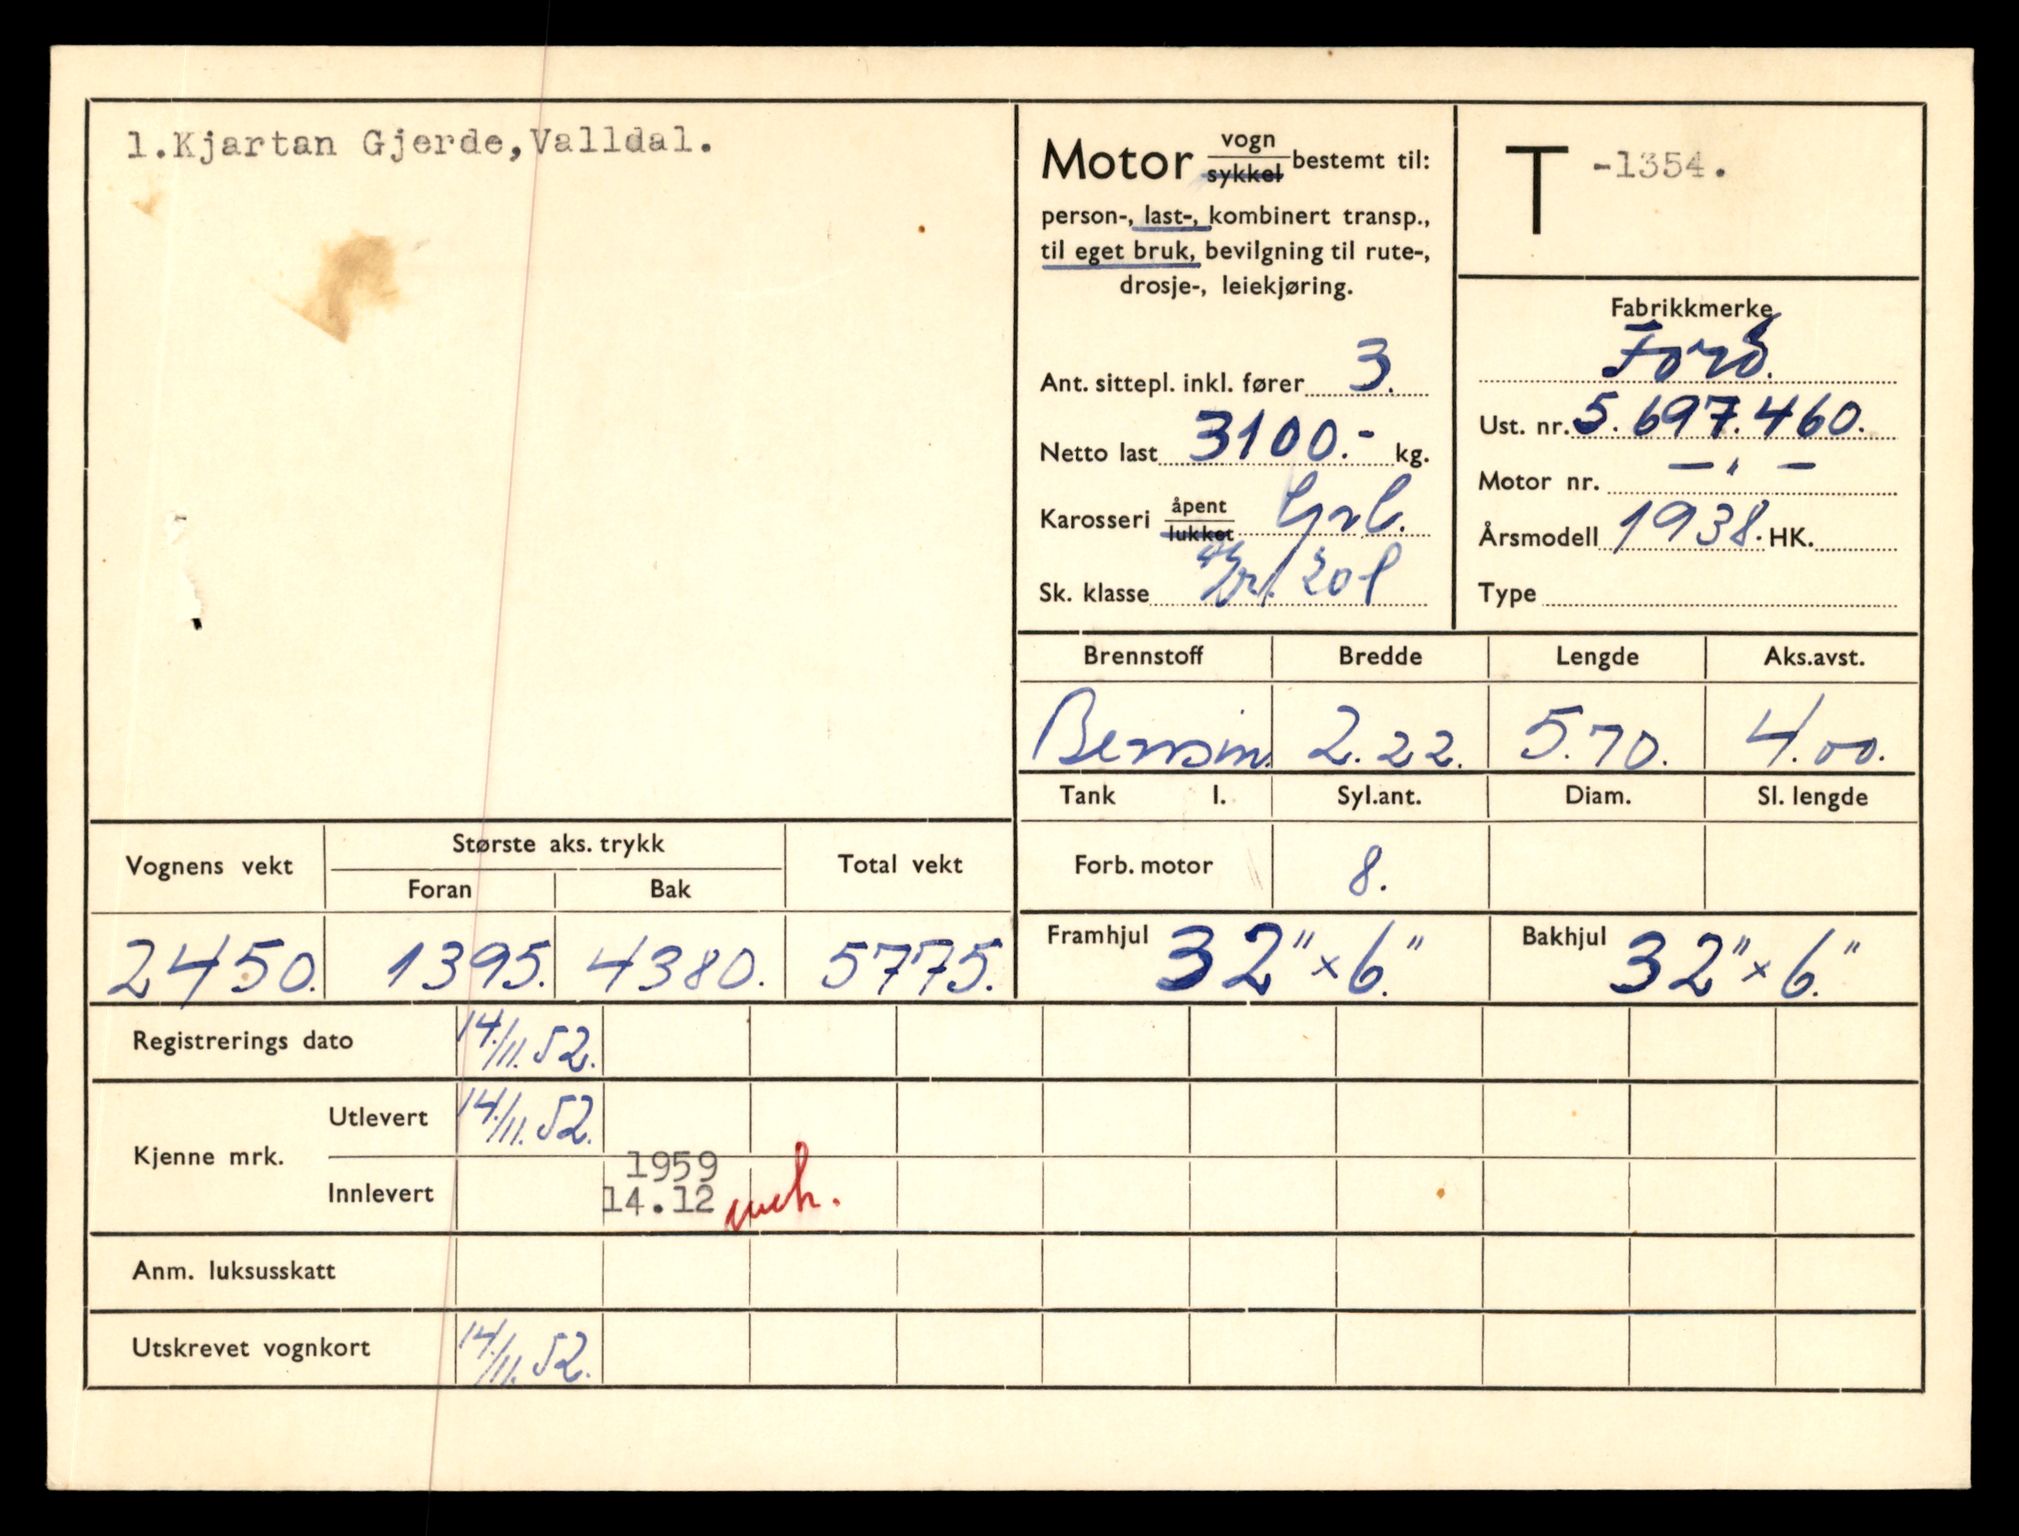 1.Kjartan Gjerde, Valldal.
Motor vogn/sykkel bestemt til:
person-, last-, kombinert transp.,
til eget bruk, bevilgning til rute-,
drosje-, leiekjøring.
Ant. sittepl. inkl. fører 3.
Netto last 3100.- kg.
Karosseri åpent/lukket
Sk. klasse
T -1354.
Fabrikkmerke
Ford.
Ust. nr. 5.697.460.
Motor nr. — " —
Årsmodell 1938. HK.
Type
Brennstoff Bredde Lengde Aks.avst.
Bensin. 2.22. 5.70. 4.00.
Tank l. Syl.ant. Diam. Sl. lengde
Forb. motor 8.
Framhjul 32" x 6." Bakhjul 32" x 6."
Vognens vekt Største aks. trykk Total vekt
Foran Bak
2450. 1395. 4380. 5775.
Registrerings dato 14./11. 52.
Kjenne mrk. Utlevert 14./11. 52.
Innlevert 1959
14.12
Anm. luksusskatt
Utskrevet vognkort 14./11. 52.